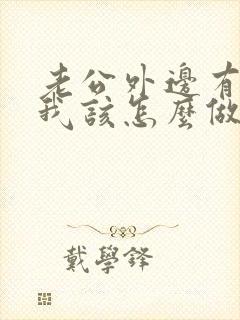 老公外邊有
我該怎麼做
戴學鋒